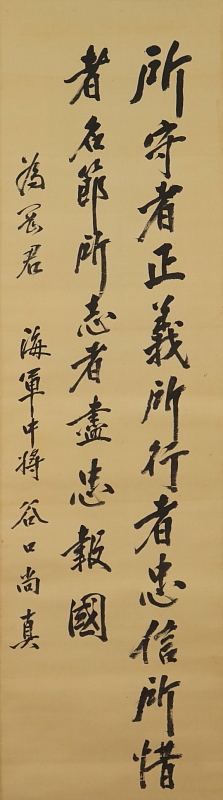 所守者正義所行者忠信所惜
者名節所志者盡忠報國
為 君 海軍中将 谷口尚真